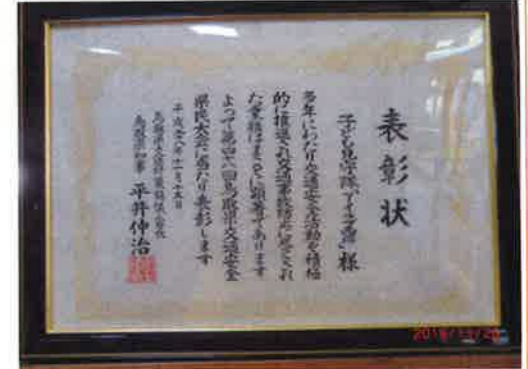 表彰状
子ども見守り隊 様
多年にわたり交通安全活動を積極
的に推進され交通事故防止に尽くされ
た業績はまことに顕著であります
よって第四十八回鳥取県交通安全
県民大会に当たり表彰します
平成二十八年十一月十五日
鳥取県交通対策協議会会長
鳥取県知事 平井伸治